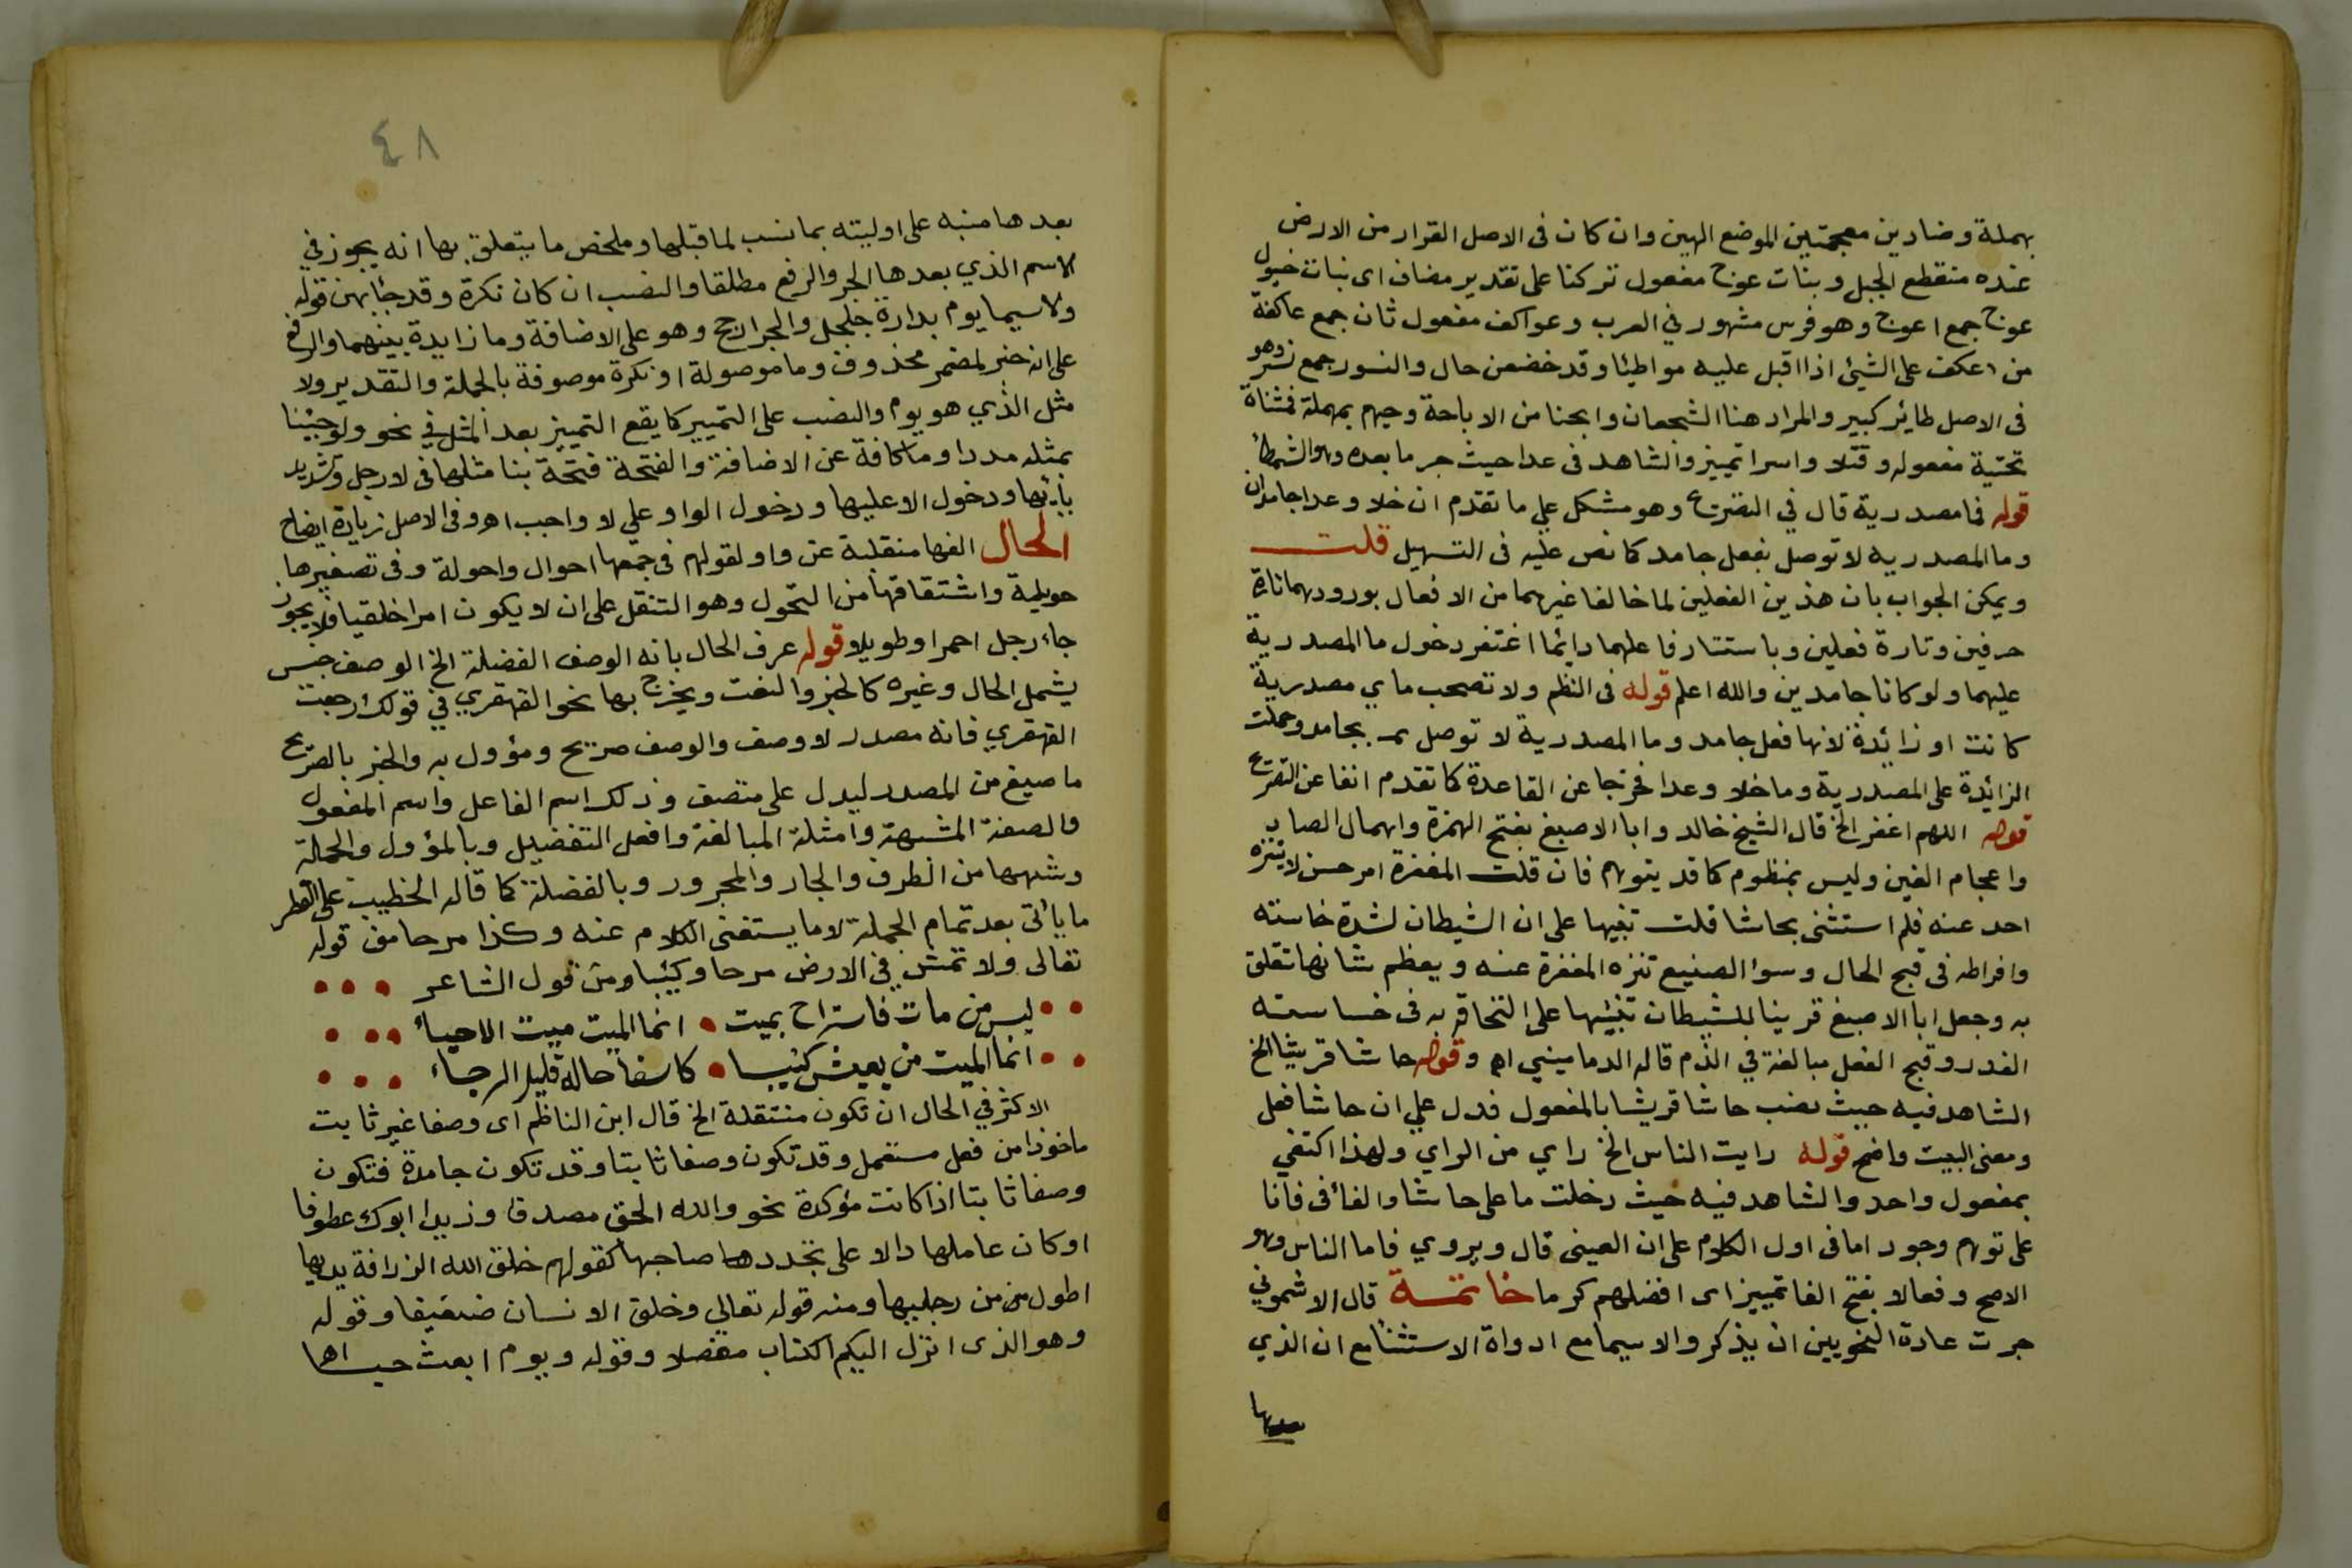 بهملة وضادين معجمتين الموضع الهين وان كان فى الاصل القرار من الارض
عنده منقطع الجبل وبنات عوج مفعول تركنا على تقدير مضاف اى بنات خيول
عوج جمع اعوج وهو فرس مشهور فى العرب وعواكف مفعول ثان جمع عاكفة
من عكف على الشيئ اذا اقبل عليه مواطبا وقد خضعن حال والنسور جمع نسر وهو
فى الاصل طائر كبير والمراد هنا الشجعان وابحنا من الاباحة وحيهم بمهملة فمثناة
تحتية مفعوله وقتلا واسرا تمييز والشاهد فى عدا حيث جر ما بعده وهو الشمطا
قوله فما مصدرية قال في التصريح وهو مشكل علي ما تقدم ان خلا وعدا جامدان
وما المصدرية لا توصل بفعل جامد كما نص عليه فى التسهيل قلت
ويمكن الجواب بان هذين الفعلين لما خالفا غيرهما من الافعال بورودهما تارة
حرفين وتارة فعلين وباستتار فاعلهما دائما اغتفر دخول ما المصدرية
عليهما ولو كانا جامدين والله اعلم قوله فى النظم ولا تصحب ما ي مصدرية
كانت او زائدة لانها فعل جامد وما المصدرية لا توصل بجامد وحملت
الزائدة على المصدرية وما خلا وعدا فخرجا عن القاعدة كما تقدم انفا عن التصريح
قوله اللهم اغفر الخ قال الشيخ خالد وابا الاصبغ بفتح الهمزة واهمال الصاد
واعجام الغين وليس بمنظوم كما قد يتوهم فان قلت المغفرة امر حسن لا يتنزه
احد عنه فلم استثنى بحاشا قلت تنبيها على ان الشيطان لشدة خاسته
وافراطه فى قبح الحال وسوٴ الصنيع تنزه المغفرة عنه ويعظم شانها تتعلق
به وجعل ابا الاصبغ قرينا للشيطان تنبيها على التحاقه به فى خساسته
الغدر وقبح الفعل مبالغة في الذم قاله الدماميني اه وقوله حاشا قريشا الخ
الشاهد فيه حيث نصب حاشا قريشا بالمفعول فدل علي ان حاشا فعل
ومعنى البيت واضح قوله رايت الناس الخ راي من الراي ولهذا اكتفي
بمفعول واحد والشاهد فيه حيث دخلت ما على حاشا والفا فى فانا
على توهم وجود اما فى اول الكلام على ان العينى قال ويروي فاما الناس وهو
الاصح وفعالا بفتح الفا تمييز اى افضلهم كرما خاتمة قال الاشموني
جرت عادة النحويين ان يذكروا لاسيما مع ادواة الاستثنا مع ان الذي
بعدها
٤٨
بعدها منبه على اوليته بما نسب لما قبلها وملخص ما يتعلق بها انه يجوز في
الاسم الذي بعدها الجر والرفع مطلقا والنصب ان كان نكرة وقد جٴا بهن قوله
ولاسيما يوم بدارة جلجل والجر ارجح وهو على الاضافة وما زايدة بينهما والرفع
على انه خبر لمضمر محذوف وما موصولة او نكرة موصوفة بالجملة والتقدير ولا
مثل الذي هو يوم والنصب على التمييز كما يقع التمييز بعد المثل في نحو ولو جئنا
بمثله مددا وما كافة عن الاضافة والفتحة فتحة بنا مثلها فى لا رجل وتشديد
يائها ودخول الا عليها ودخول الواو على لا واجب اهـ وفى الاصل زيادة ايضاح
الحال الفها منقلبة عن واو لقولهم فى جمعها احوال واحولة وفى تصغيرها
حويلية واشتقاقها من التحول وهو التنقل على ان لا يكون امرا خلقيا فلا يجوز
جاء رجل احمرا وطويلا وقوله عرف الحال بانه الوصف الفضلة الخ الوصف جنس
يشمل الحال وغيره كالخبر والنعت ويخرج بها نحو القهقري في قولك رجعت
القهقري فانه مصدر لا وصف والوصف صريح ومؤول به والخبز بالصريح
ما صيغ من المصدر ليدل على متصف وذلك اسم الفاعل واسم المفعول
والصفة المشبهة وامثلة المبالغة وافعل التفضيل وبالمؤول والجملة
وشبهها من الظرف والجار والمجرور وبالفضلة كما قاله الخطيب على القطر
ما يأتى بعد تمام الجملة لا ما يستغنى الكلام عنه وكذا مرحا من قوله
تعالى ولا تمش في الارض مرحا وكئيبا من قول الشاعر
ليس من مات فاستراح بميت • انما الميت ميت الاحياء
انما الميت من يعيش كئيبا • كاسفا حاله قليل الرجاء
الاكثر في الحال ان تكون منتقلة الخ قال ابن الناظم اى وصفا غير ثابت
ماخوذا من فعل مستعمل وقد تكون وصفا ثابتا وقد تكون جامدة فتكون
وصفا ثابتا اذا كانت مؤكدة نحو والله الحق مصدقا وزيدا ابوك عطوفا
او كان عاملها دالا على تجدد صاحبها كقولهم خلق الله الزرافة يديها
اطول من رجليها ومنه قوله تعالى وخلق الانسان ضعيفا وقوله
وهو الذى انزل اليكم الكتاب مفصلا وقوله ويوم ابعث حيا اهـ